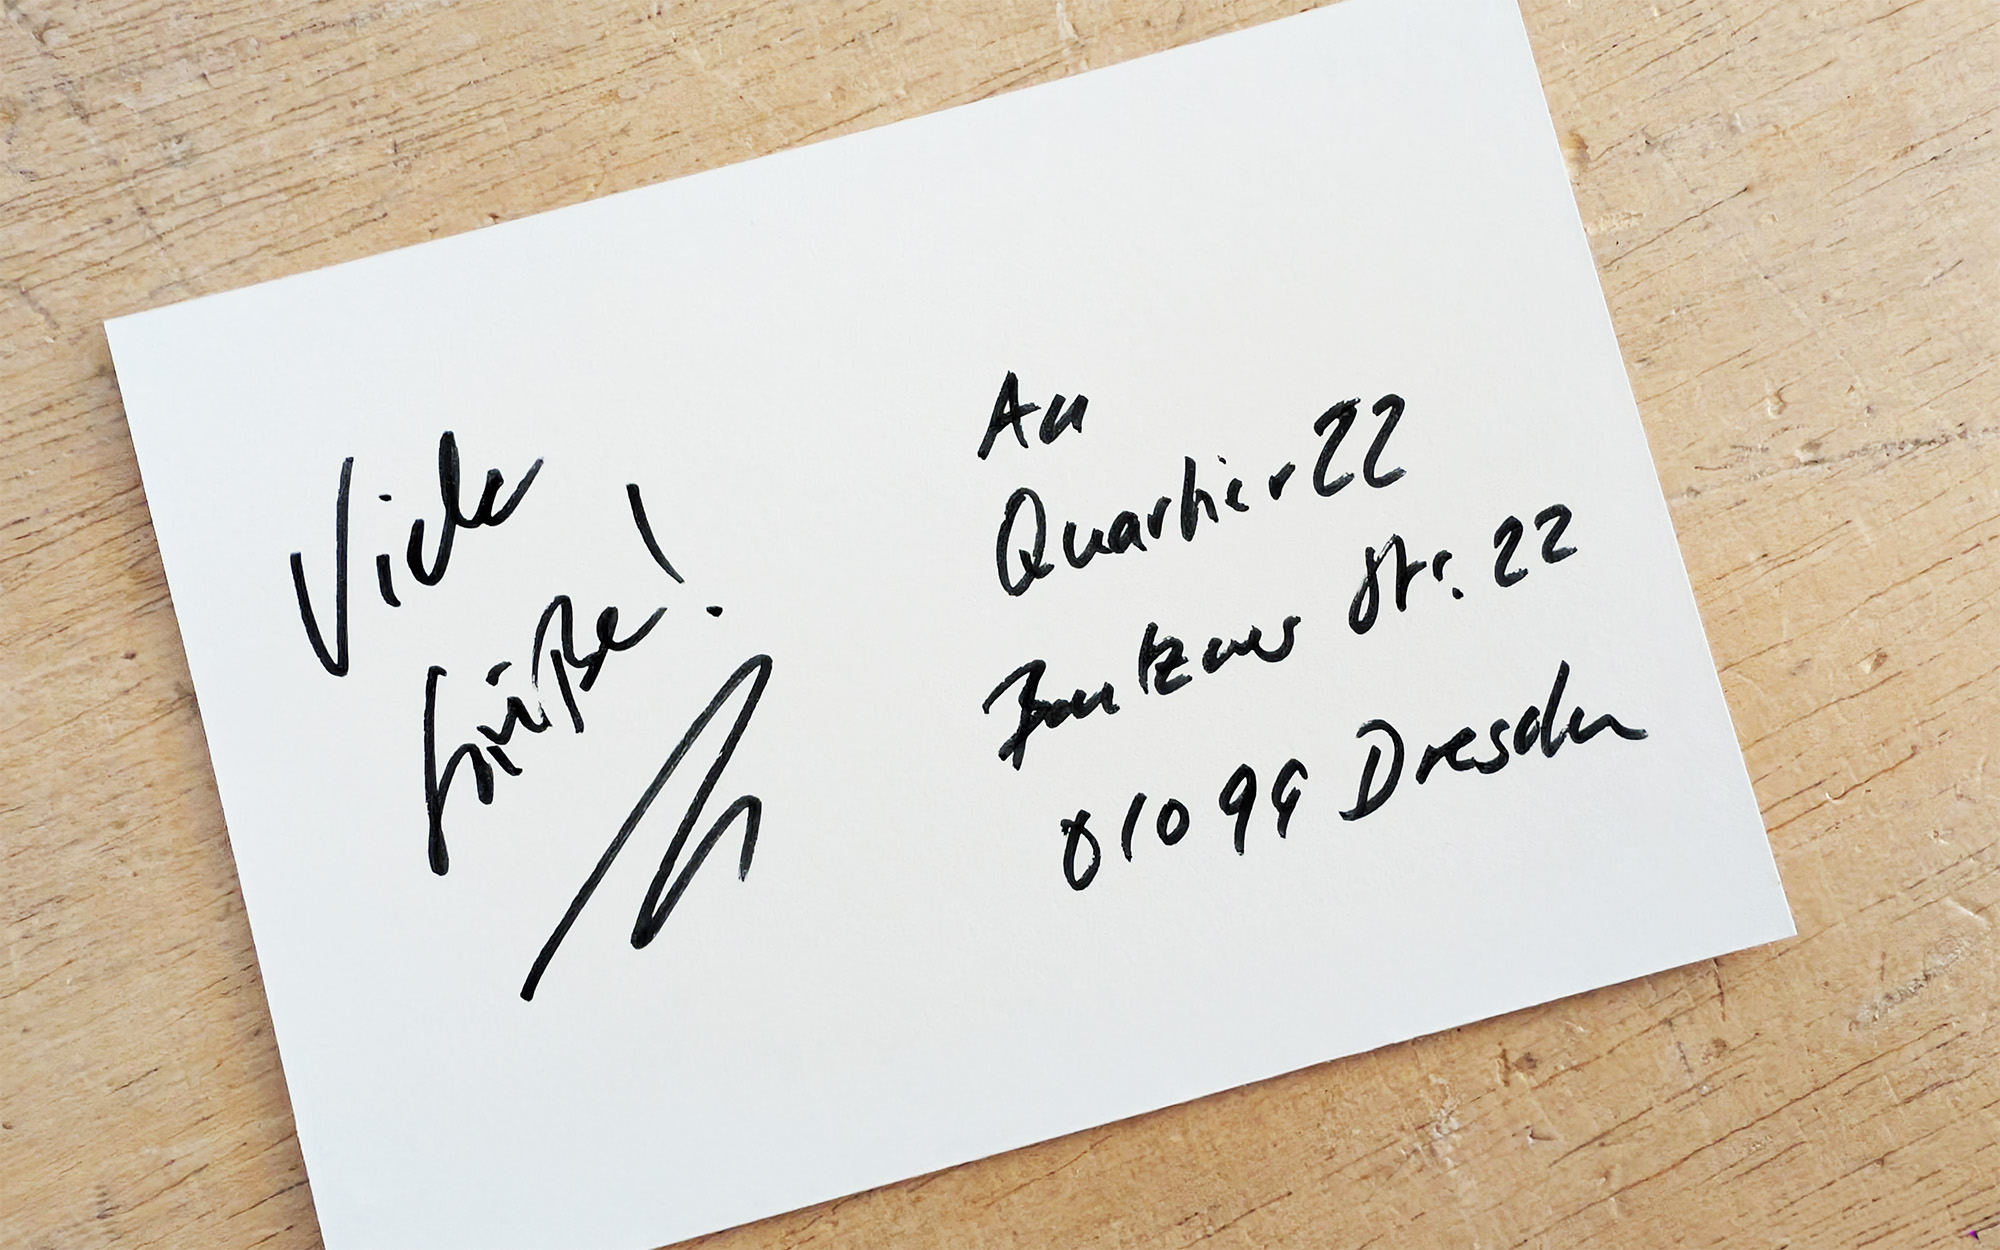 Viele
Grüße!
An
Quartier 22
Bautzner Str. 22
01099 Dresden